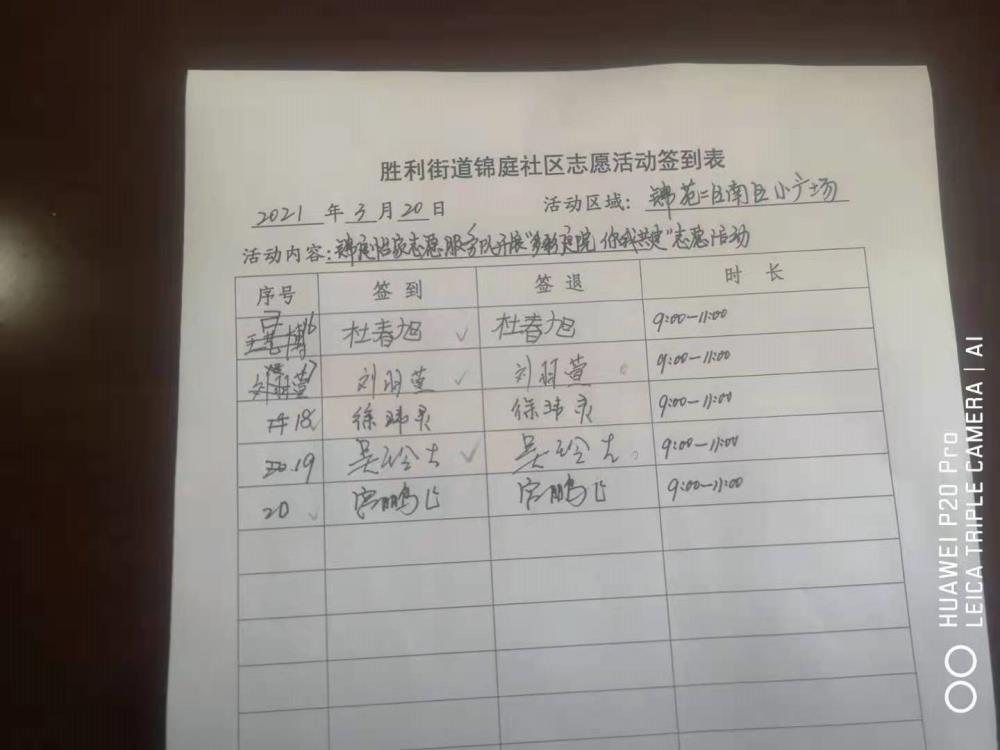 胜利街道锦庭社区志愿活动签到表
2021 年 3 月 20 日 活动区域: 锦苑二区南区小广场
活动内容: 锦庭怡家志愿服务队开展"多彩庭院 你我共建"志愿活动
序号 签到 签退 时长
16 杜春旭 杜春旭 9:00-11:00
17 刘羽萱 刘羽萱 9:00-11:00
18 徐玮灵 徐玮灵 9:00-11:00
19 吴 9:00-11:00
20 宫鹏飞 宫鹏飞 9:00-11:00
HUAWEI P20 Pro
LEICA TRIPLE CAMERA | AI